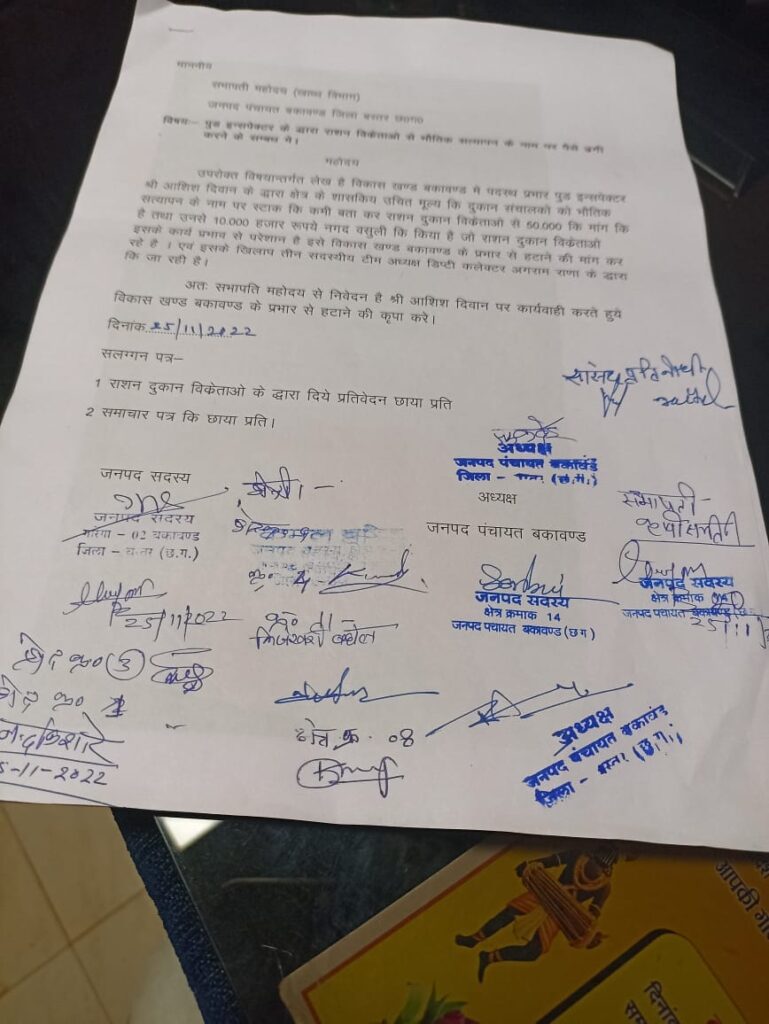 माननीय
सभापती महोदय (खाध्य विभाग)
जनपद पंचायत बकावण्ड जिला बस्तर छ०ग०
विषयः– पुड इन्सपेक्टर के द्वारा राशन विकेताओ से भौतिक सत्यापन के नाम पर पैसे उगी
करने के सम्बध मे।
महोदय
उपरोक्त विषयान्तर्गत लेख है विकास खण्ड बकावण्ड मे पदस्थ प्रभार पुड इन्सपेक्टर
श्री आशिश दिवान के द्वारा क्षेत्र के शासकिय उचित मूल्य कि दुकान संचालको को भौतिक
सत्यापन के नाम पर स्टाक कि कमी बता कर राशन दुकान विकेताओ से 50.000 कि मांग कि
है तथा उनसे 10.000 हजार रूपये नगद वसुली कि किया है जो राशन दुकान विकेताओ
इसके कार्य प्रभाव से परेशान है इसे विकास खण्ड बकावण्ड के प्रभार से हटाने की मांग कर
रहे है । एवं इसके खिलाप तीन सदस्यीय टीम अध्यक्ष डिप्टी कलेक्टर अगराम राणा के द्वारा
कि जा रही है।
अतः सभापति महोदय से निवेदन है श्री आशिश दिवान पर कार्यवाही करते हुये
विकास खण्ड बकावण्ड के प्रभार से हटाने की कृपा करे।
दिनांक 25/11/2022
सलग्गन पत्र–
1 राशन दुकान विकेताओ के द्वारा दिये प्रतिवेदन छाया प्रति
2 समाचार पत्र कि छाया प्रति।
सांसद प्रतिनीधी
अध्यक्ष
जनपद पंचायत बकावंड
जिला – बस्तर (छ.ग.)
जनपद सदस्य
अध्यक्ष
जनपद पंचायत बकावण्ड
सभापती –
जनपद सदस्य
02 बकावण्ड
जिला – बस्तर (छ.ग.)
क्र० – 4
जनपद सदस्य
क्षेत्र क्रमांक 14
जनपद पंचायत बकावण्ड (छ.ग)
जनपद सदस्य
क्षेत्र क्रमांक
जनपद पंचायत बकावण्ड छ
25/11
25/11/2022
क्र० 3
क्षेत्र क्र. 08
नन्दकिशोर
5-11-2022
अध्यक्ष
जनपद पंचायत बकावंड
जिला – बस्तर (छ.ग.)
आपकी
दिनांक